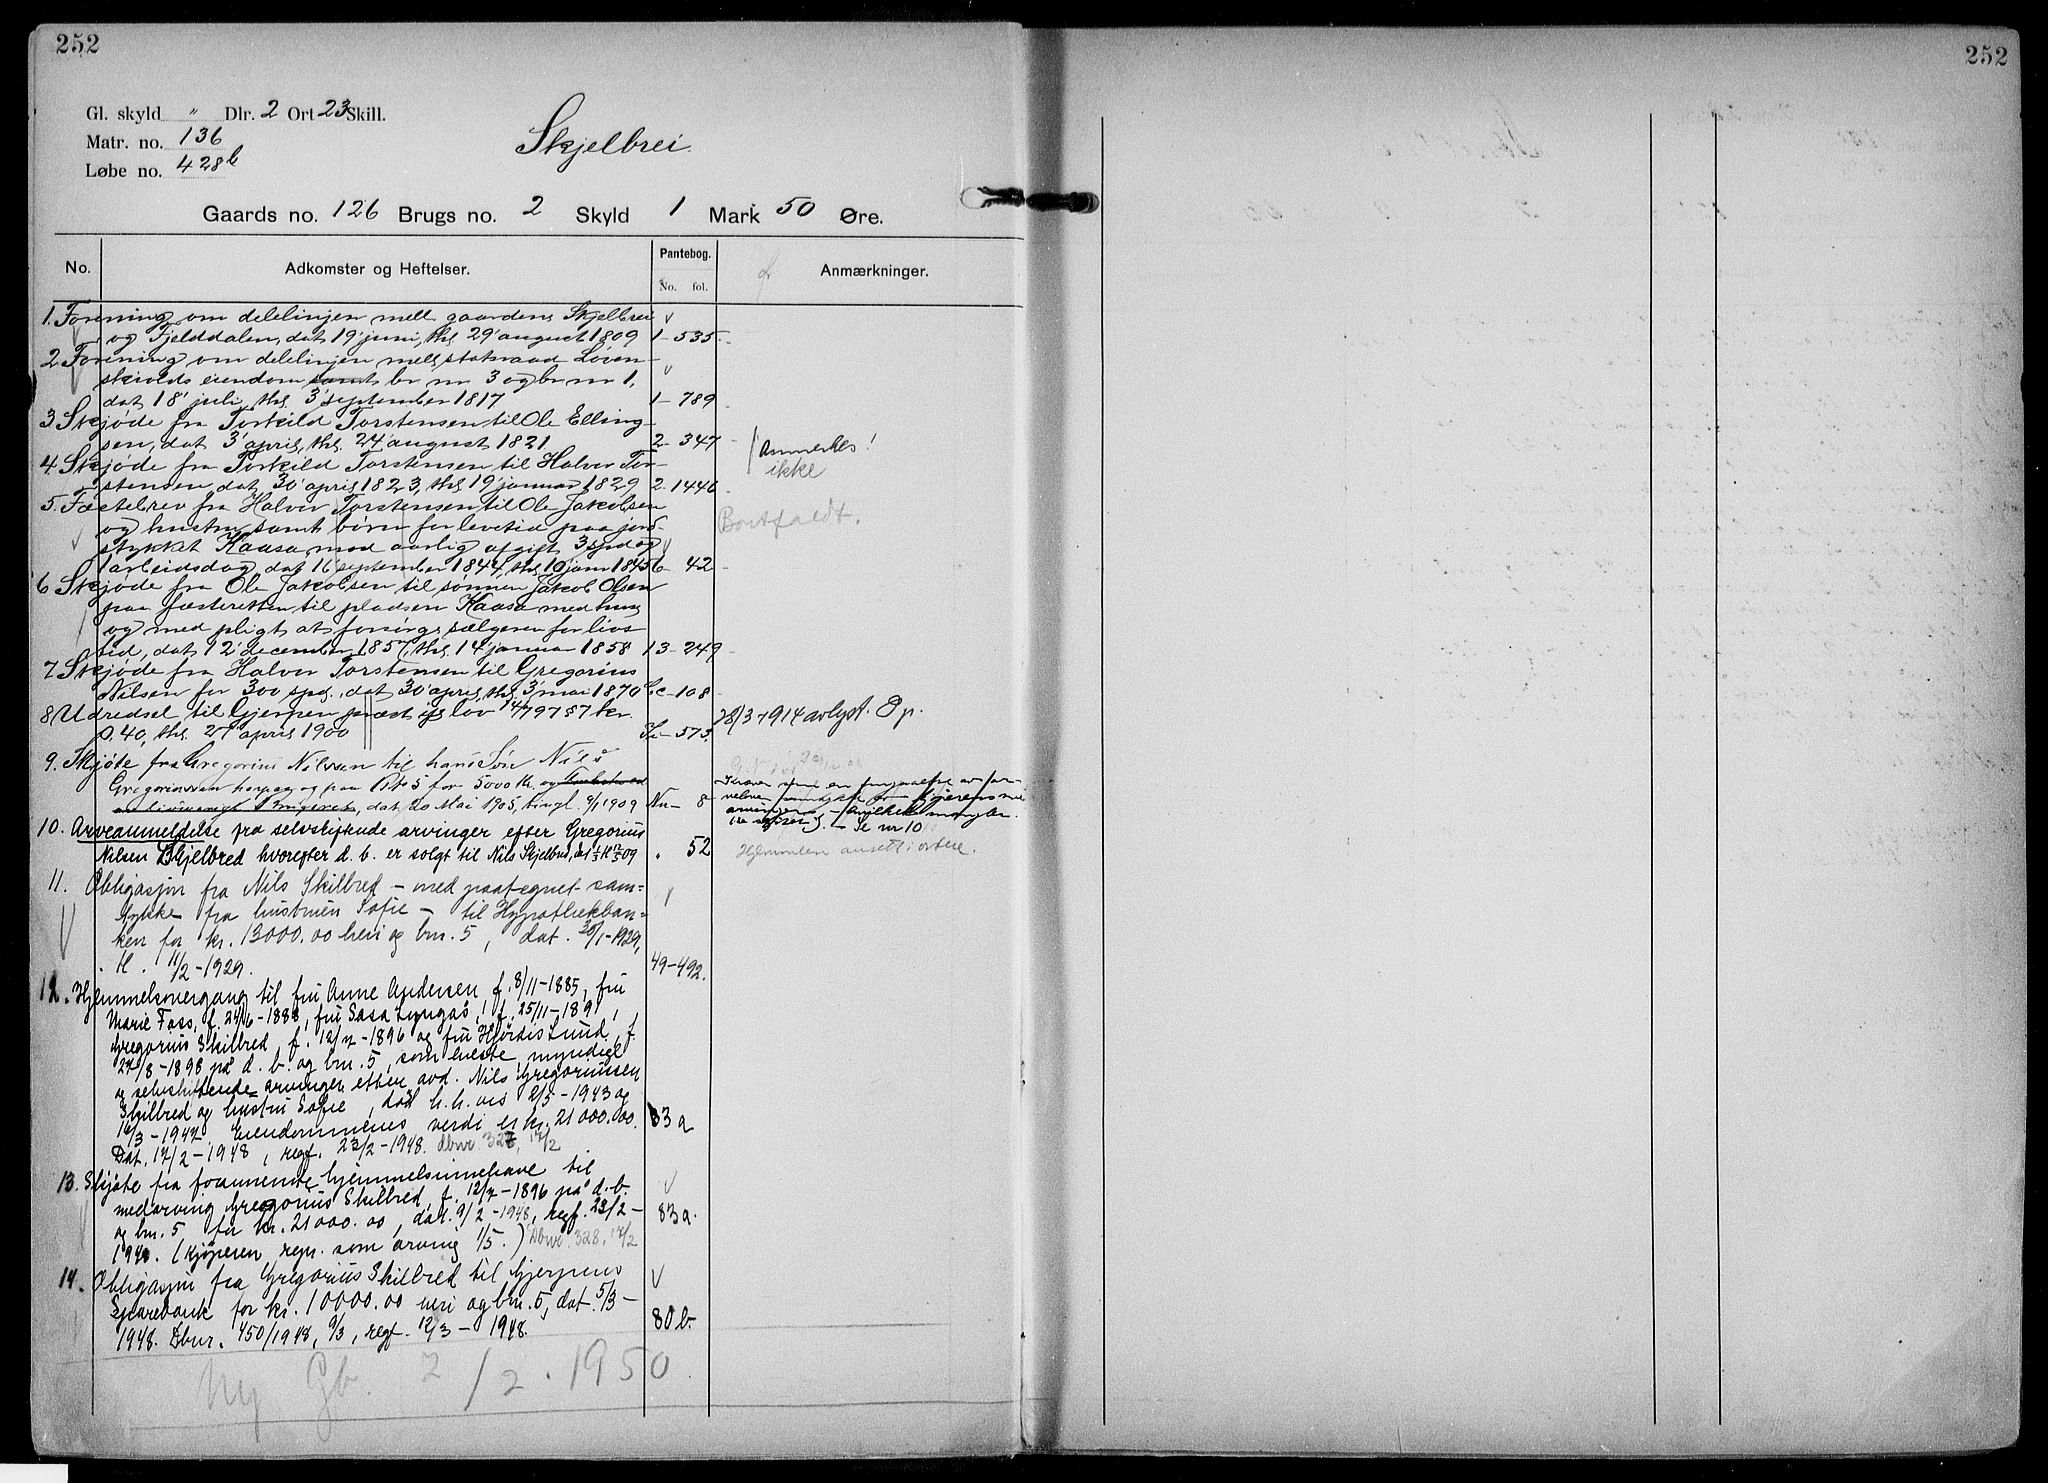 252
252
Gl. skyld " Dlr. 2 Ort 23 Skill.
Matr. no. 136
Løbe no. 428b
Skjelbrei
Gaards no. 126 Brugs no. 2 Skyld 1 Mark 50 Øre.
No. Adkomster og Heftelser. Pantebog. Anmærkninger.
No. fol.
1. Forening om delelinjen mell. gaardene Skjelbrei
og Fjelddalen, dat 19' juni, thl 29' august 1809 1-535.
2 Forening om delelinjen mell. statsraad Løven-
skiolds eiendom samt br nr 3 og br nr 1,
dat 18' juli, thl 3' september 1817 1-789
3 Skjøde fra Torkild Torstensen til Ole Elling-
sen, dat 3' april, thl. 24' august 1821 2-347
(Anmerkes!
ikke
4. Skjøde fra Torkild Torstensen til Halvor Tor-
stensen, dat 30' april 1823, thl 19' januar 1829 2-1446
5. Fæstebrev fra Halvor Torstensen til Ole Jakobsen
og hustru samt børn for levetid paa jord-
stykket Kaasa mod aarlig afgift 3 spd og
1 arbeidsdag, dat 16 september 1844, thl 10 janr 1845 6-42
Bortfaldt.
6 Skjøde fra Ole Jakobsen til sønnen Jakob Olsen
paa fæsteretten til pladsen Kaasa med hus
og med pligt at forsørge sælgeren for livs-
tid, dat 12' december 1857, thl 14' januar 1858 13-249
7 Skjøde fra Halvor Torstensen til Gregorius
Nilsen for 300 spd., dat 30' april, thl. 3' mai 1870 Cc-108
8 Udredsel til Gjerpen præst ifs lov 14/7 97 § 7 kr.
0.40, thl. 27' april 1900 573.
28/3-1914 avlyst.
9. Skjøte fra Gregorius Nilsen til hans Søn Nils
Gregoriussen herpaa og paa Bno 5 for 5000 Kr. og
dat. 20 Mai 1905, tingl. 9/1 1909 Nu-8
se nr 10
10. Arveanmeldelse fra selvskiftende arvinger efter Gregorius
Nilsen Skjelbred hvorefter d. b. er solgt til Nils Skjelbred, 52
Hjemmelen ansett i orden.
11. Obligasjon fra Nils Skilbred - med paategnet sam=
tykke fra hustruen Sofie - til Hypothekban=
ken for kr. 13000.00 heri og bnr. 5, dat. 30/1-1929,
tl. 11/2-1929. 49-492.
12. Hjemmelsovergang til fru Anne Andersen, f. 8/11-1885, fru
Marie Foss, f. 24/6-1888, fru Sasa Lyngås, f. 25/11-1891,
Gregorius Skilbred, f. 12/7-1896 og fru Hjørdis Lund, f.
27/8-1898 på d. b. og bnr. 5, som eneste, myndige
og selvskiftende arvinger etter avd. Nils Gregoriussen
Skilbred og hustru Sofie, død h.h.vis 2/5-1943 og
16/3-1947. Eiendommenes verdi er kr. 21000.00. 83a
Dat. 17/2-1948, regf. 23/2-1948. dbnr. 327, 17/2
13. Skjøte fra forannevnte hjemmelsinnehave til
medarving Gregorius Skilbred, f. 12/7-1896 på d.b.
og bnr. 5 for kr. 21000.00, dat. 9/2-1948, regf. 23/2- 83a.
1948. (Kjøperen repr. som arving 1/5.) Dbnr. 328, 17/2
14. Obligasjon fra Gregorius Skilbred til Gjerpens
Sparebank for kr. 10000.00 heri og bnr. 5, dat. 5/3- 80b.
1948. Dbnr. 450/1948, 9/3, regf. 12/3-1948.
Ny Gb. 2/2.1950